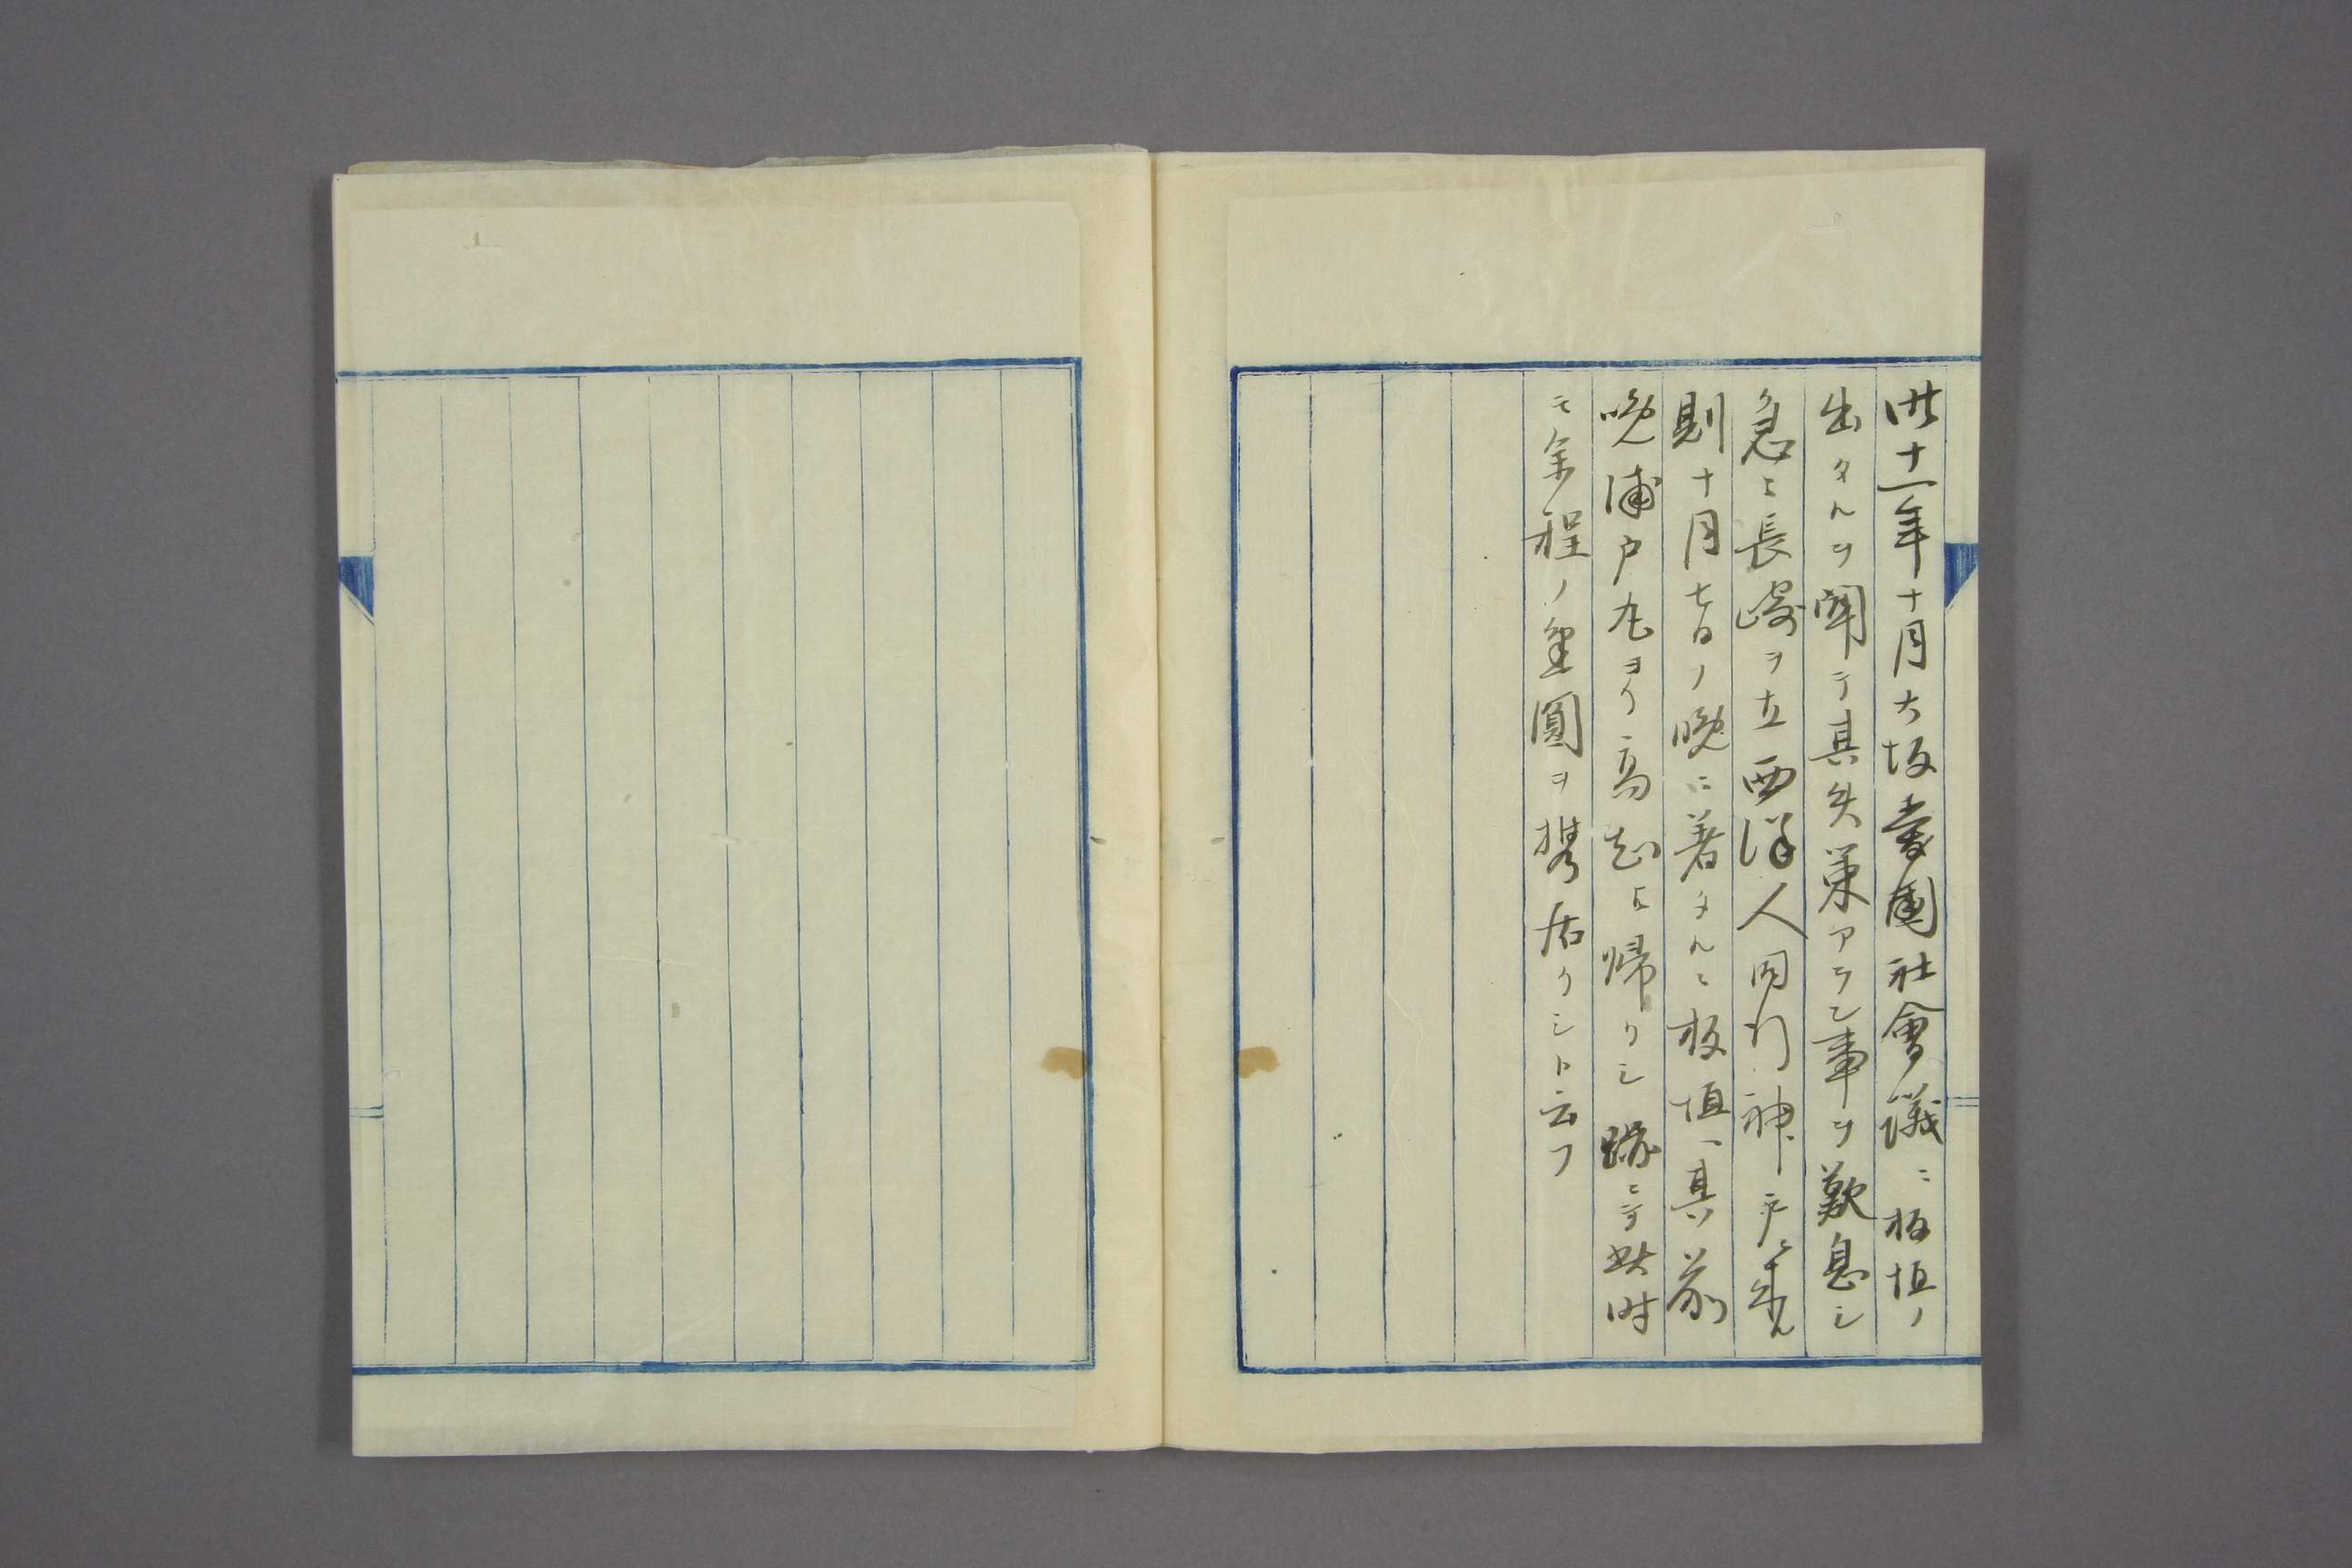 此十一年十月大坂愛國社會議ニ板垣ノ
出タルヲ聞テ其失策アラン事ヲ歎息シ
急ニ長崎ヲ立西洋人同行神戸ニ来ル
則十月七日ノ晩ニ着タルニ板垣ハ其前
晩浦戸丸ヨリ高知ヘ帰リシ跡ニテ此時
モ余程ノ金圓ヲ携居リシト云フ